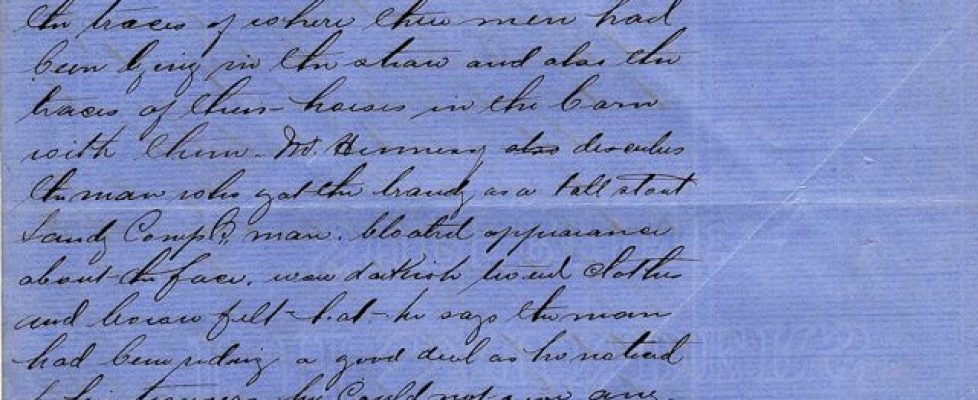 the traces of where these men had
been lying in the straw and also the
traces of their horses in the barn
with them. Mr. Hennessy also describes
the man who got the brandy as a tall stout
Sandy Compd. man. bloated appearance
about the face. wore darkish tweed clothes
and brown felt hat he says the man
had been riding a good deal as he noticed
his trousers he could not give any